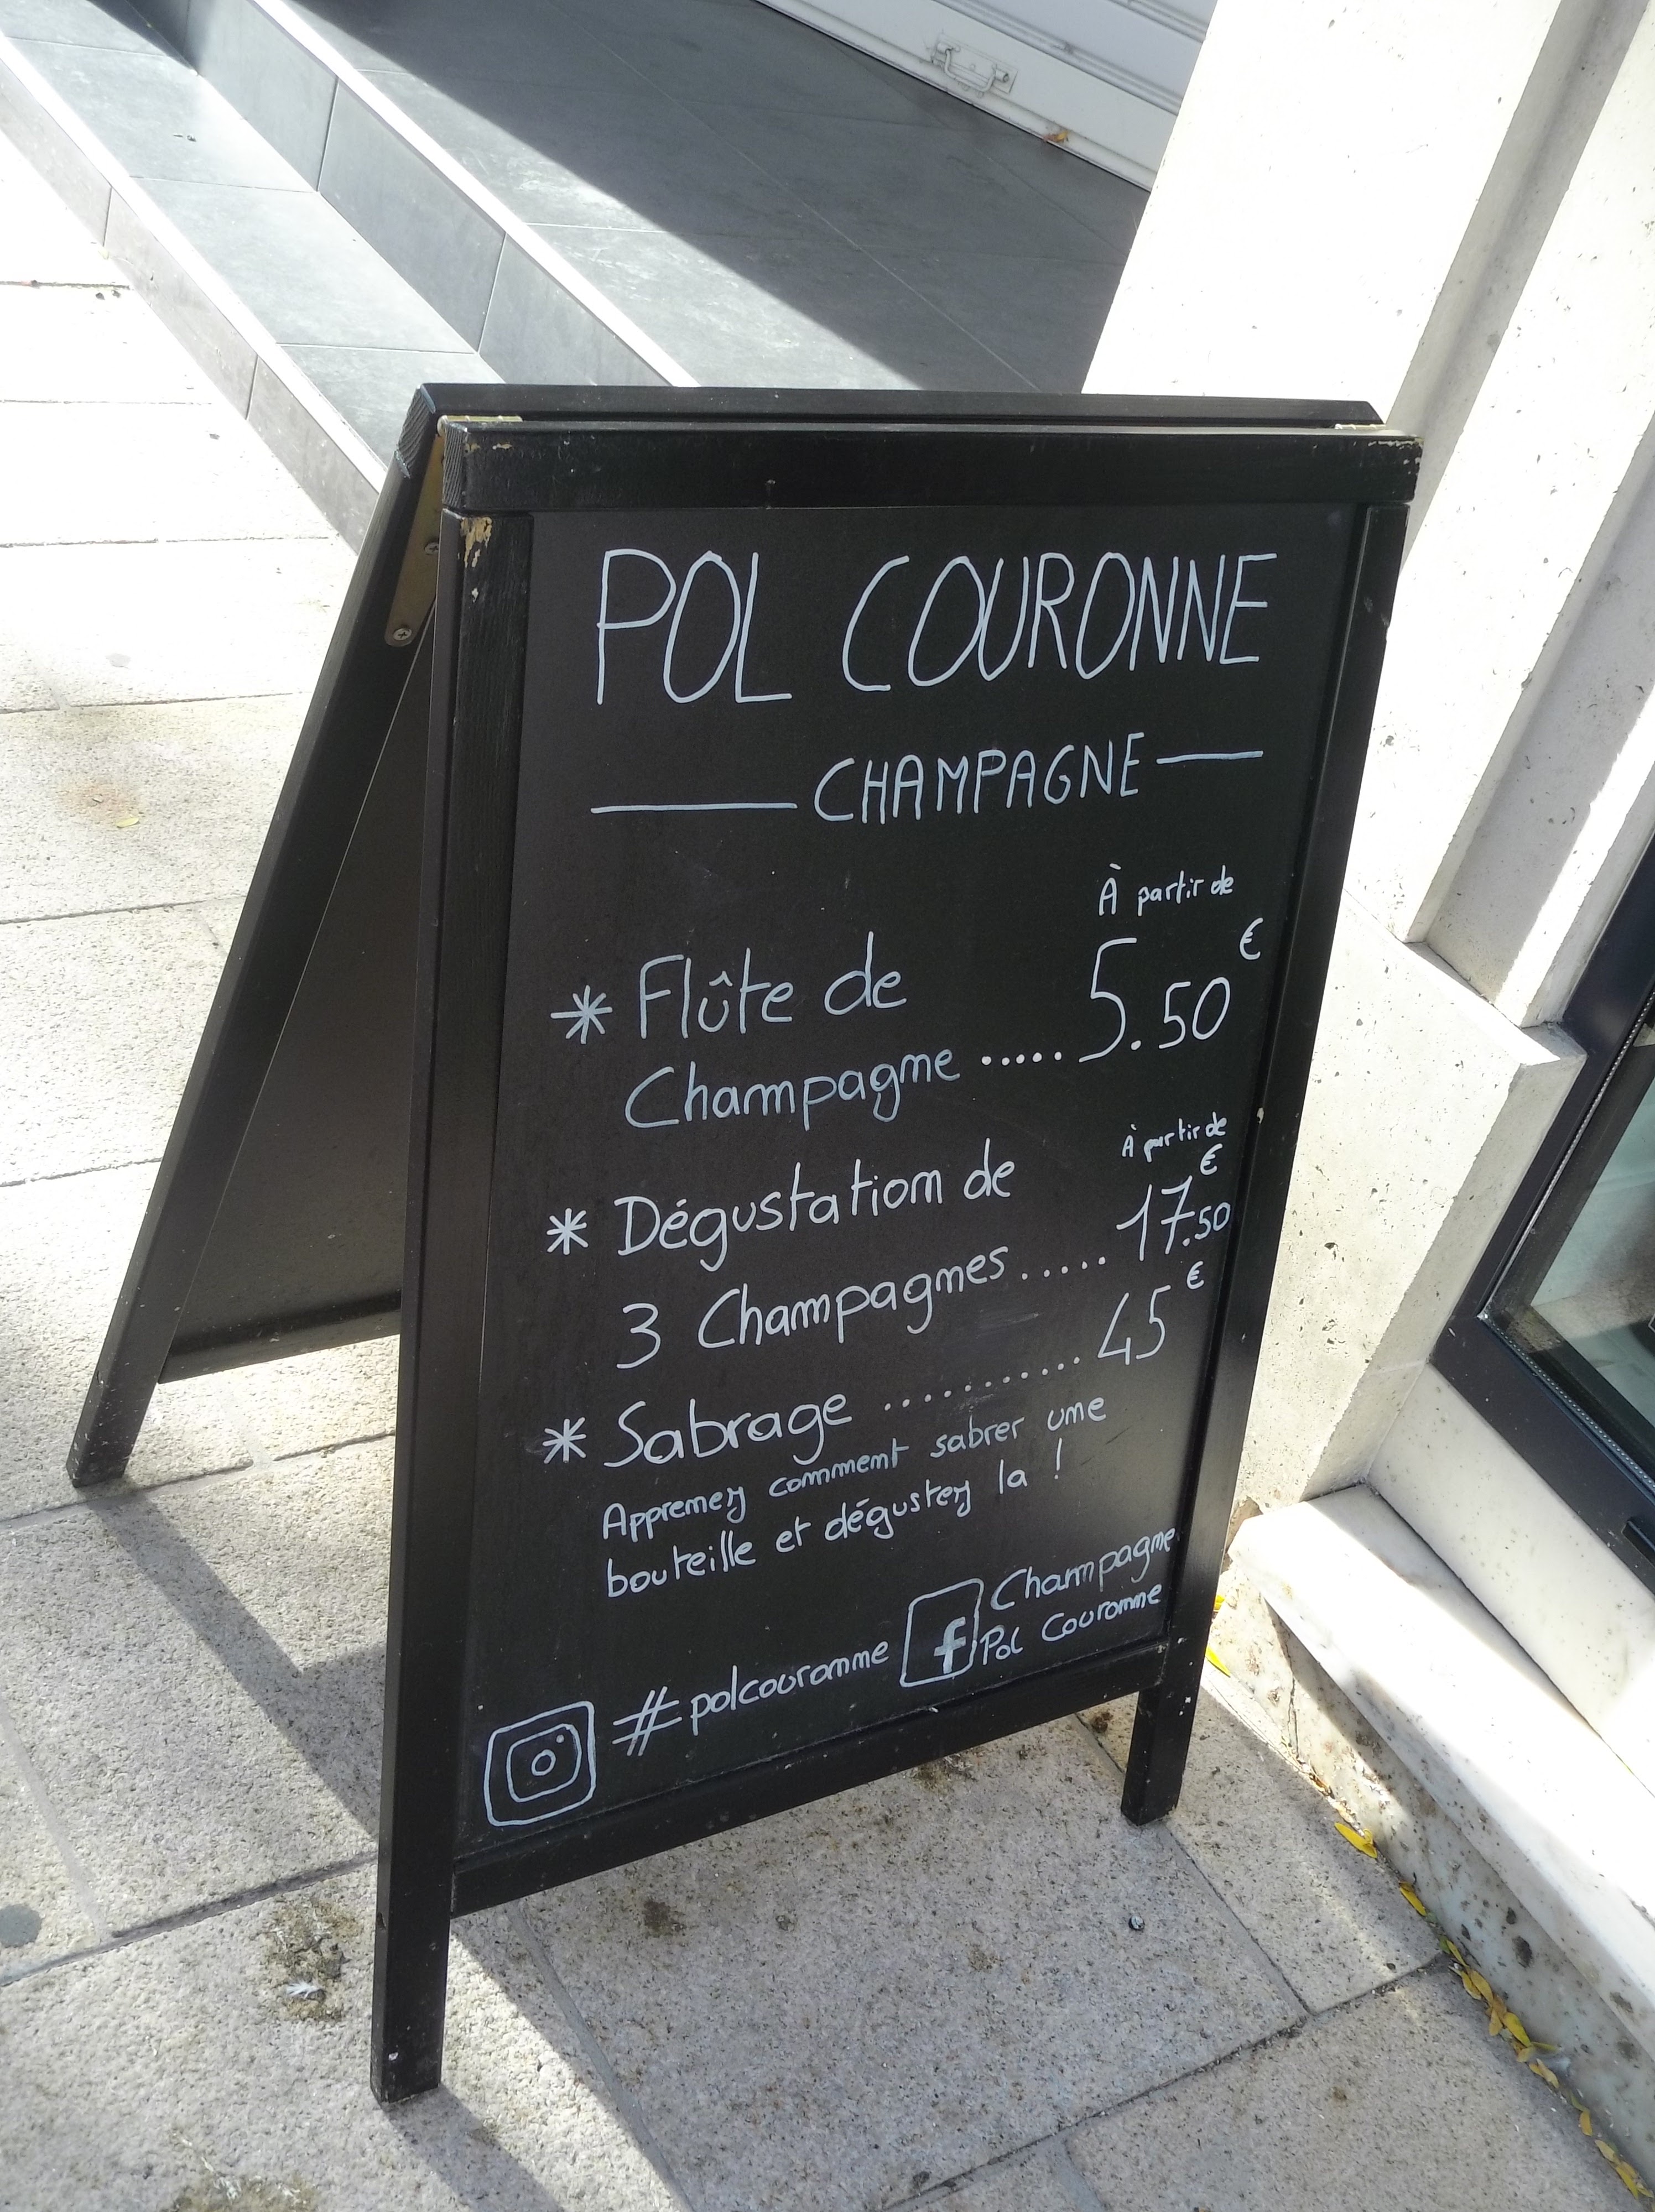 POL COURONNE
CHAMPAGNE
À partir de
* Flûte de
Champagne ..... 5.50 €
À partir de
* Dégustation de
3 Champagnes ..... 17.50 €
* Sabrage .......... 45 €
Apprenez comment sabrer une
bouteille et dégustez la !
#polcouronne
f Champagne
Pol Couronne